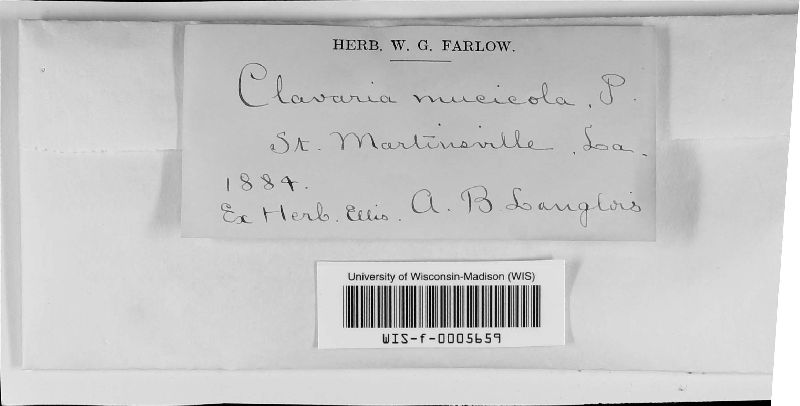 HERB. W. G. FARLOW.
Clavaria mucicola, P.
St. Martinsville, La.
1884.
Ex Herb. Ellis. A. B Langlois
University of Wisconsin-Madison (WIS)
WIS-f-0005659